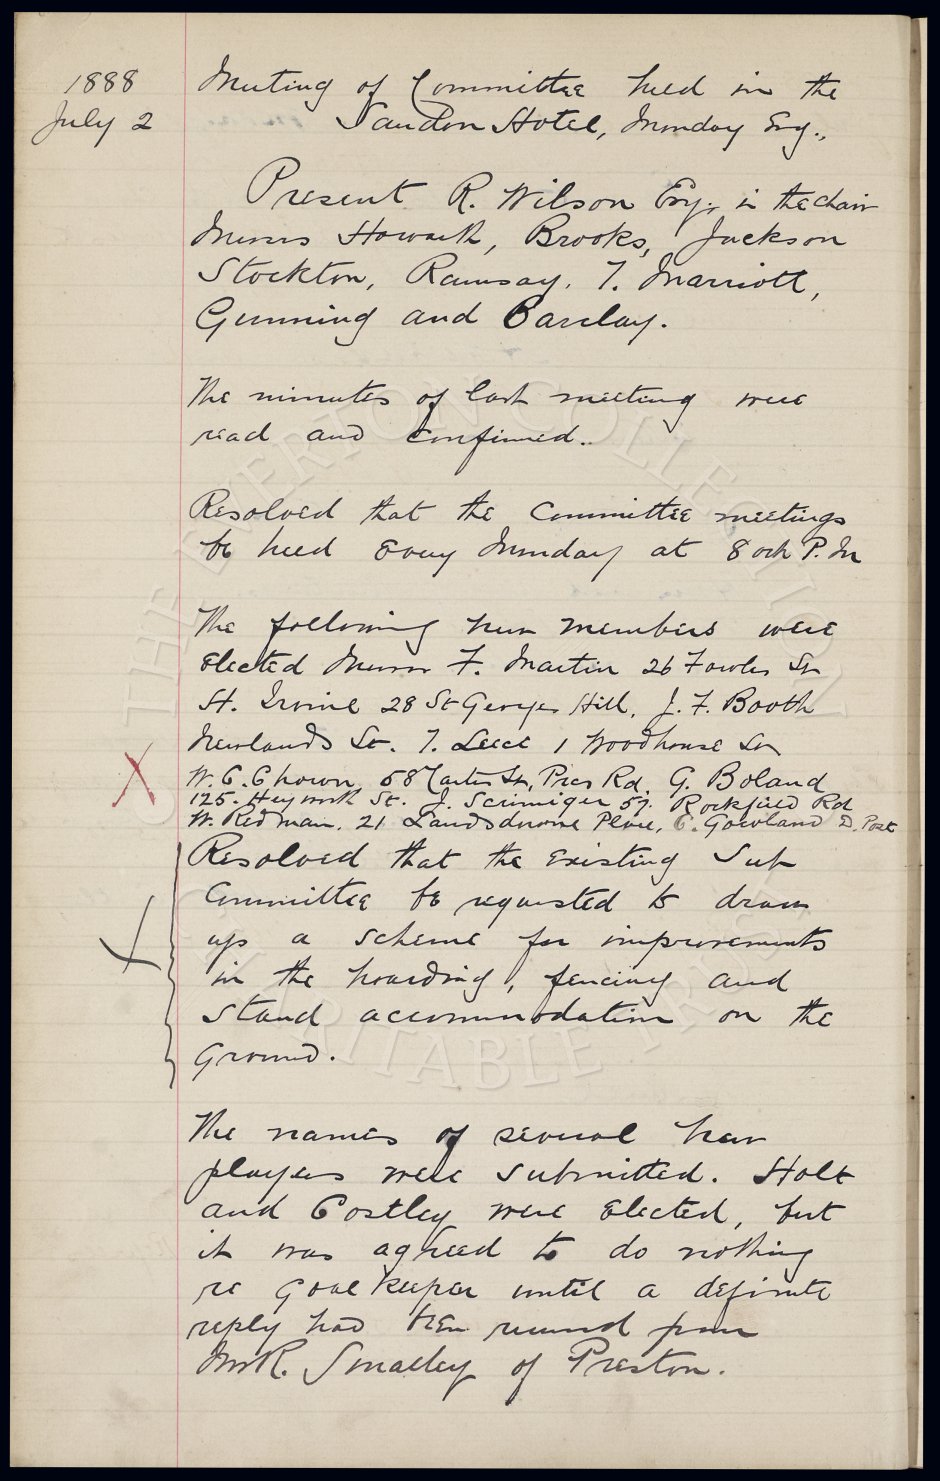 1888
July 2
Meeting of Committee held in the
Sandon Hotel, Monday Evg.,
Present R. Wilson Esq. in the chair
Messrs Howarth, Brooks, Jackson
Stockton, Ramsay, T. Marriott,
Gunning and Barclay.
The minutes of last meeting were
read and confirmed.
Resolved that the Committee meetings
be held every Monday at 8 ock P.M
The following new members were
elected Messrs F. Martin 26 Fowler St
H. Irvine 28 St Georges Hill, J. F. Booth
Newlands St. T. Leece 1 Woodhouse St
W. C. Chown, 58 Carter St, Pres Rd. G. Boland
125. Heyworth St. J. Scrimiger 59. Rockfield Rd
W. Redman. 21 Landsdowne Place, C. Gowland D. Post
Resolved that the existing Sub
Committee be requested to draw
up a scheme for improvements
in the hoarding, fencing and
stand accommodation on the
ground.
The names of several new
players were submitted. Holt
and Costley were elected, but
it was agreed to do nothing
re goal keeper until a definite
reply had been received from
Mr R. Smalley of Preston.
THE EVERTON COLLECTION
CHARITABLE TRUST